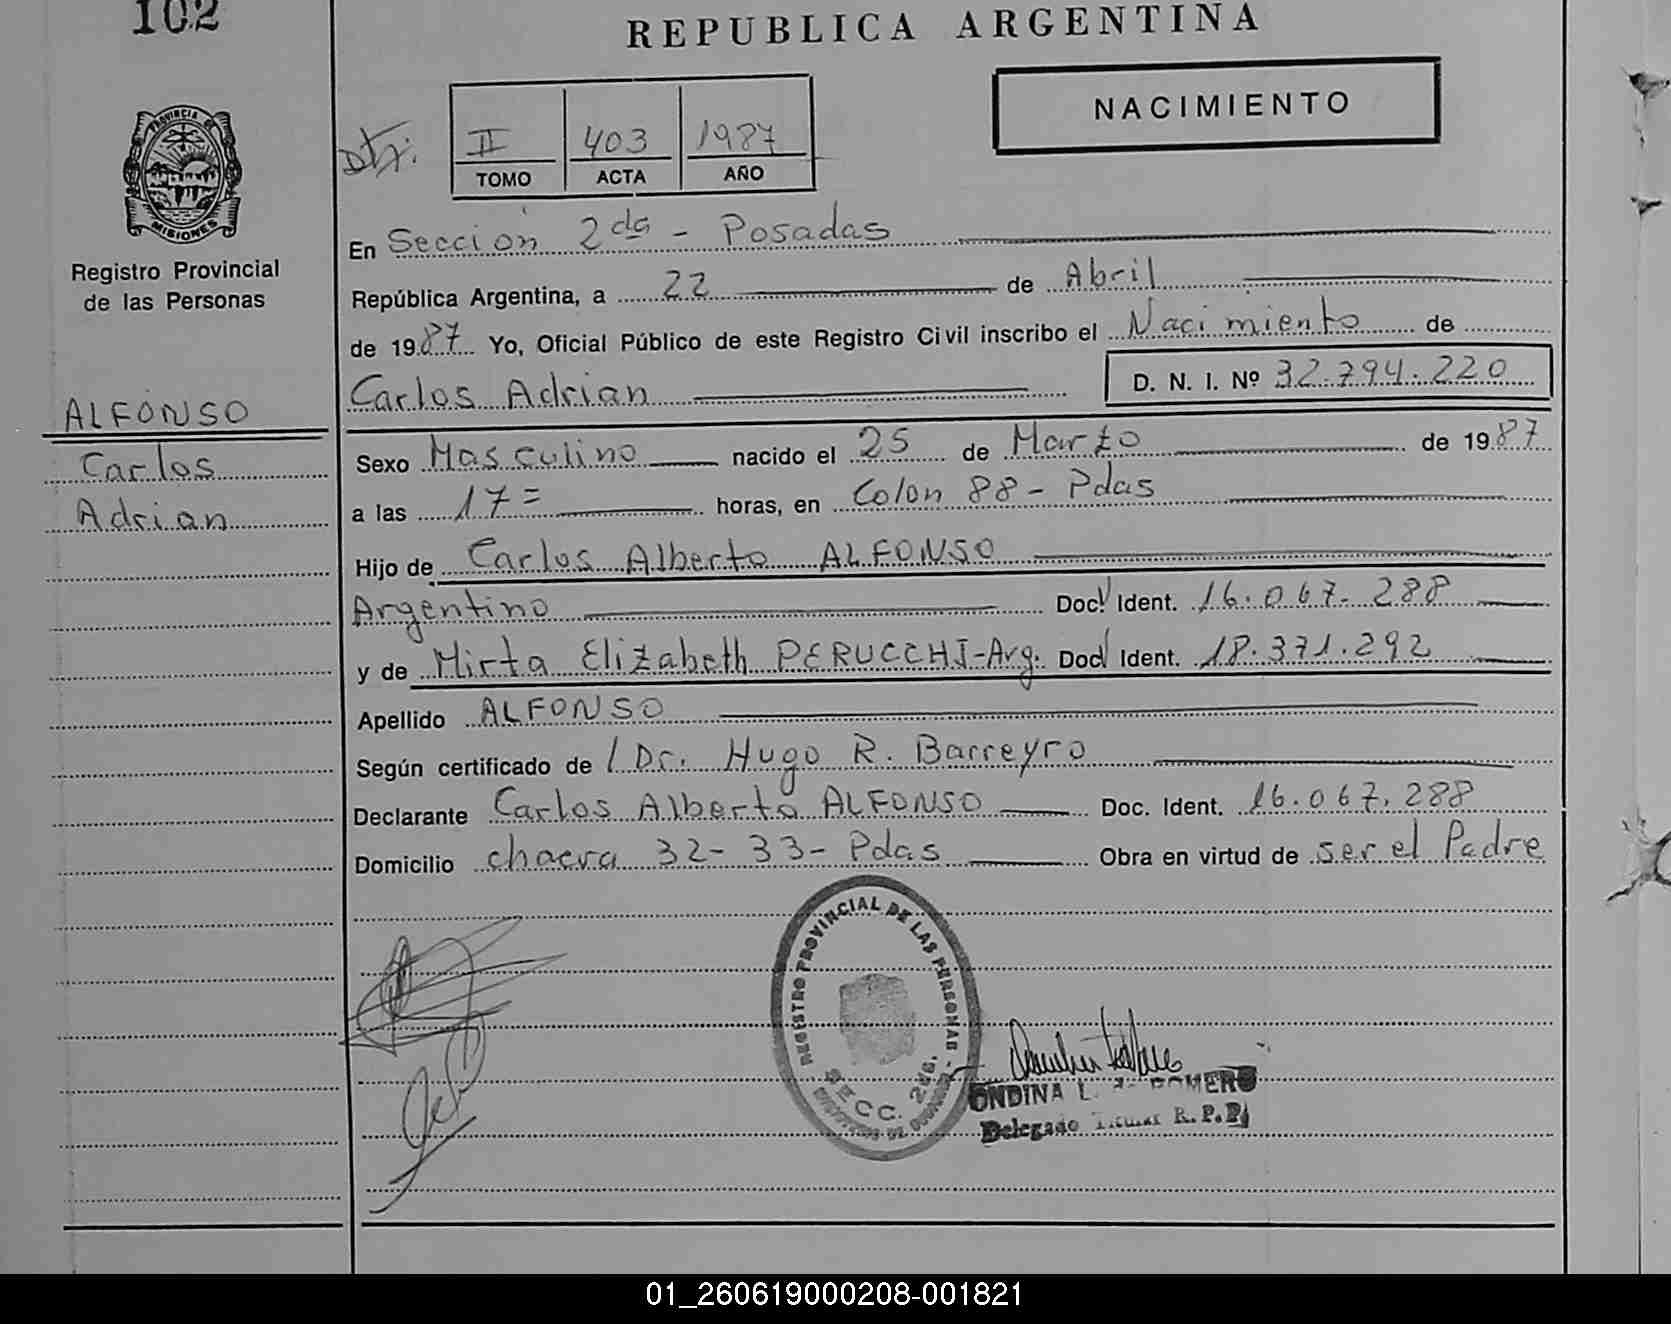 102
REPUBLICA ARGENTINA
NACIMIENTO
II 403 1987
TOMO ACTA AÑO
PROVINCIA DE
MISIONES
Registro Provincial
de las Personas
ALFONSO
Carlos
Adrian
En Sección 2da - Posadas
República Argentina, a 22 de Abril
de 1987 Yo, Oficial Público de este Registro Civil inscribo el Nacimiento de
Carlos Adrian D. N. I. Nº 32.794.220
Sexo Masculino nacido el 25 de Marzo de 1987
a las 17= horas, en Colon 88 - Pdas
Hijo de Carlos Alberto ALFONSO
Argentino Doc. Ident. 16.067.288
y de Mirta Elizabeth PERUCCHI-Arg. Doc. Ident. 18.371.292
Apellido ALFONSO
Según certificado de Dr. Hugo R. Barreyro
Declarante Carlos Alberto ALFONSO Doc. Ident. 16.067.288
Domicilio chacra 32-33-Pdas Obra en virtud de ser el Padre
REGISTRO PROVINCIAL DE LAS PERSONAS
SECC. 2da.
ONDINA L. ROMERO
Delegado Titular R. P. P.
01_260619000208-001821